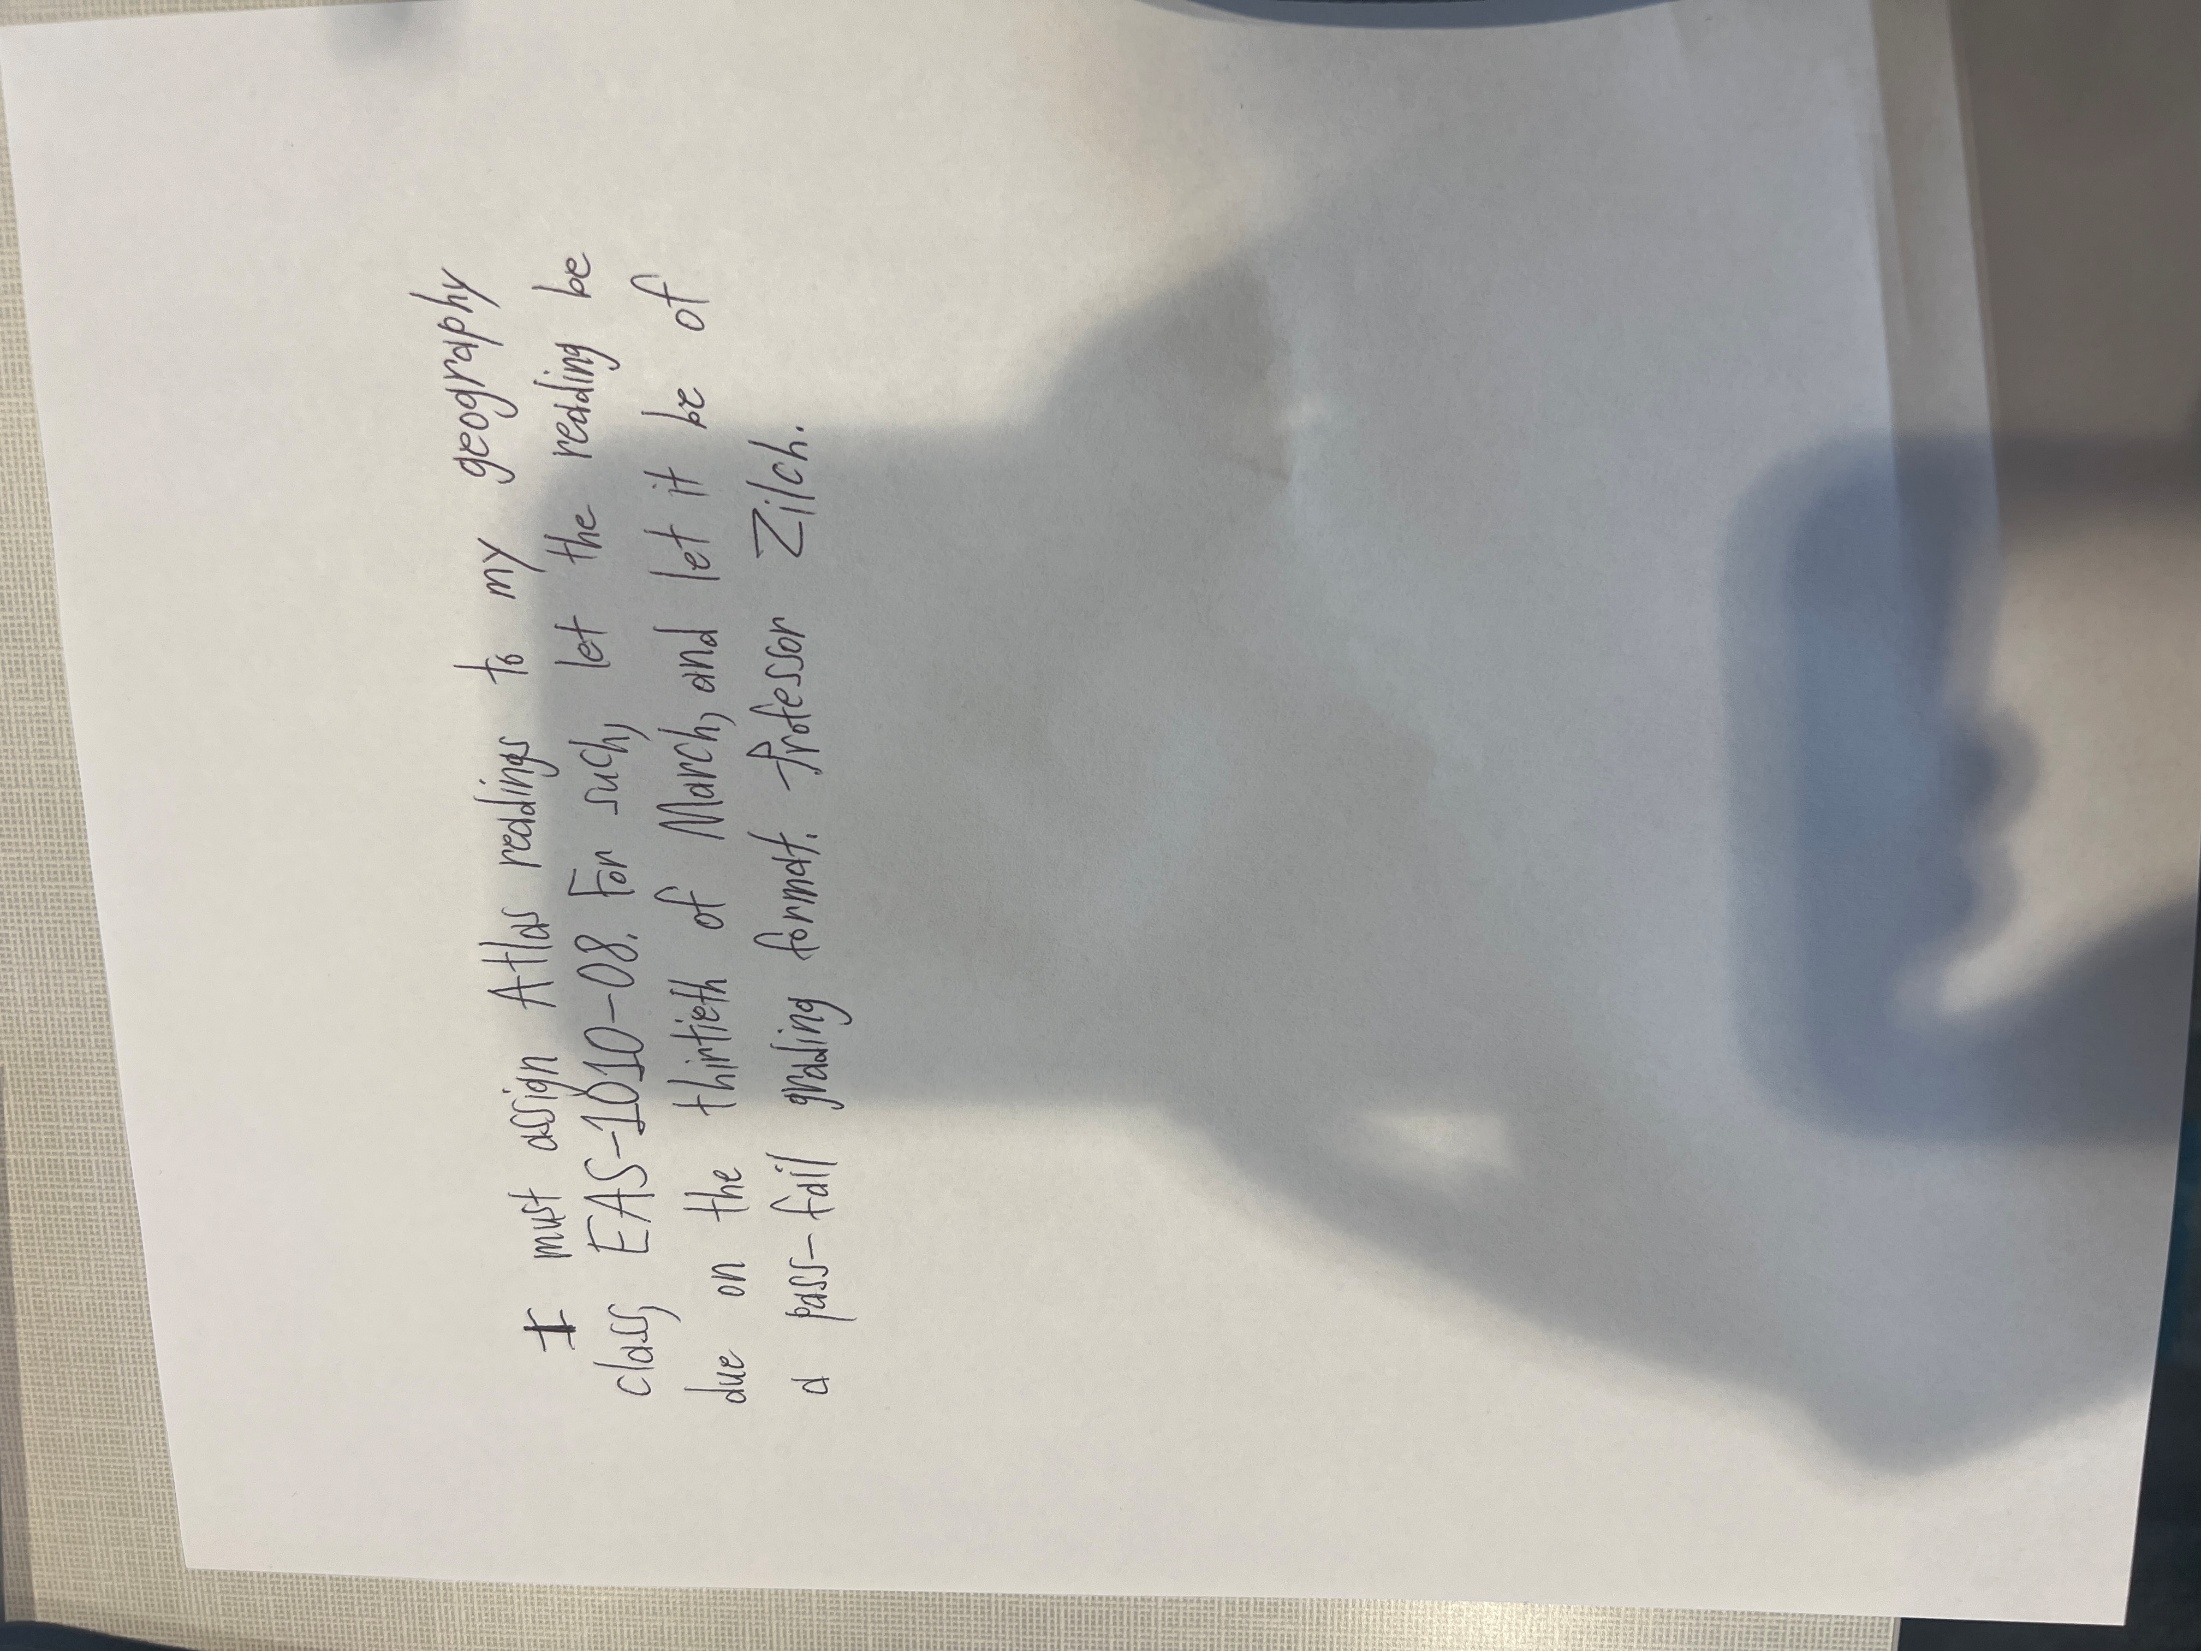 I must assign Atlas readings to my geography
class, EAS-1010-08. For such, let the reading be
due on the thirtieth of March, and let it be of
a pass-fail grading format. Professor Zilch.